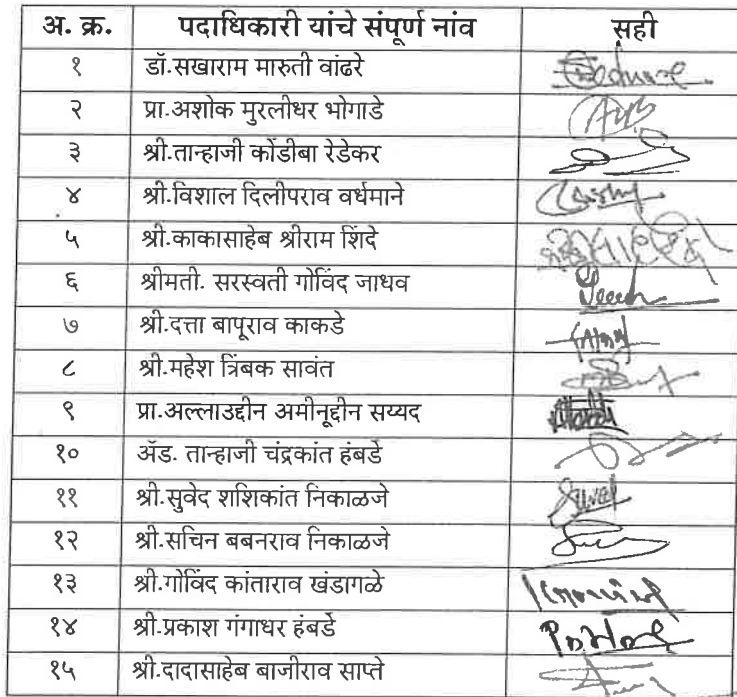 अ. क्र. पदाधिकारी यांचे संपूर्ण नांव सही
१ डॉ.सखाराम मारुती वांढरे
२ प्रा.अशोक मुरलीधर भोगाडे
३ श्री.तान्हाजी कोंडीबा रेडेकर
४ श्री.विशाल दिलीपराव वर्धमाने
५ श्री.काकासाहेब श्रीराम शिंदे
६ श्रीमती. सरस्वती गोविंद जाधव
७ श्री.दत्ता बापूराव काकडे
८ श्री.महेश त्रिंबक सावंत
९ प्रा.अल्लाउद्दीन अमीनूद्दीन सय्यद
१० ॲड. तान्हाजी चंद्रकांत हंबर्डे
११ श्री.सुवेद शशिकांत निकाळजे
१२ श्री.सचिन बबनराव निकाळजे
१३ श्री.गोविंद कांताराव खंडागळे
१४ श्री.प्रकाश गंगाधर हंबर्डे
१५ श्री.दादासाहेब बाजीराव साप्ते